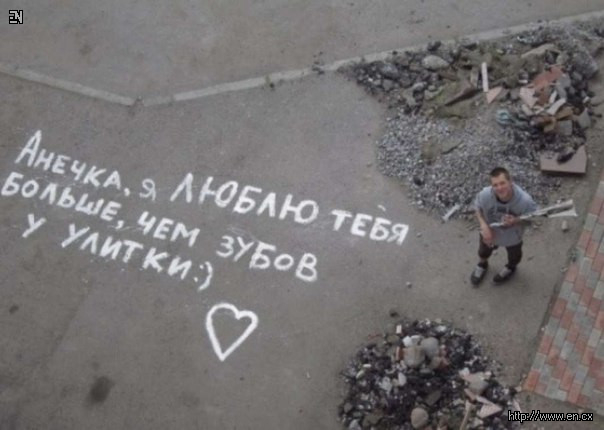 EN
Анечка, я ЛЮБЛЮ тебя
больше, чем зубов
у улитки:)
http://www.en.cx